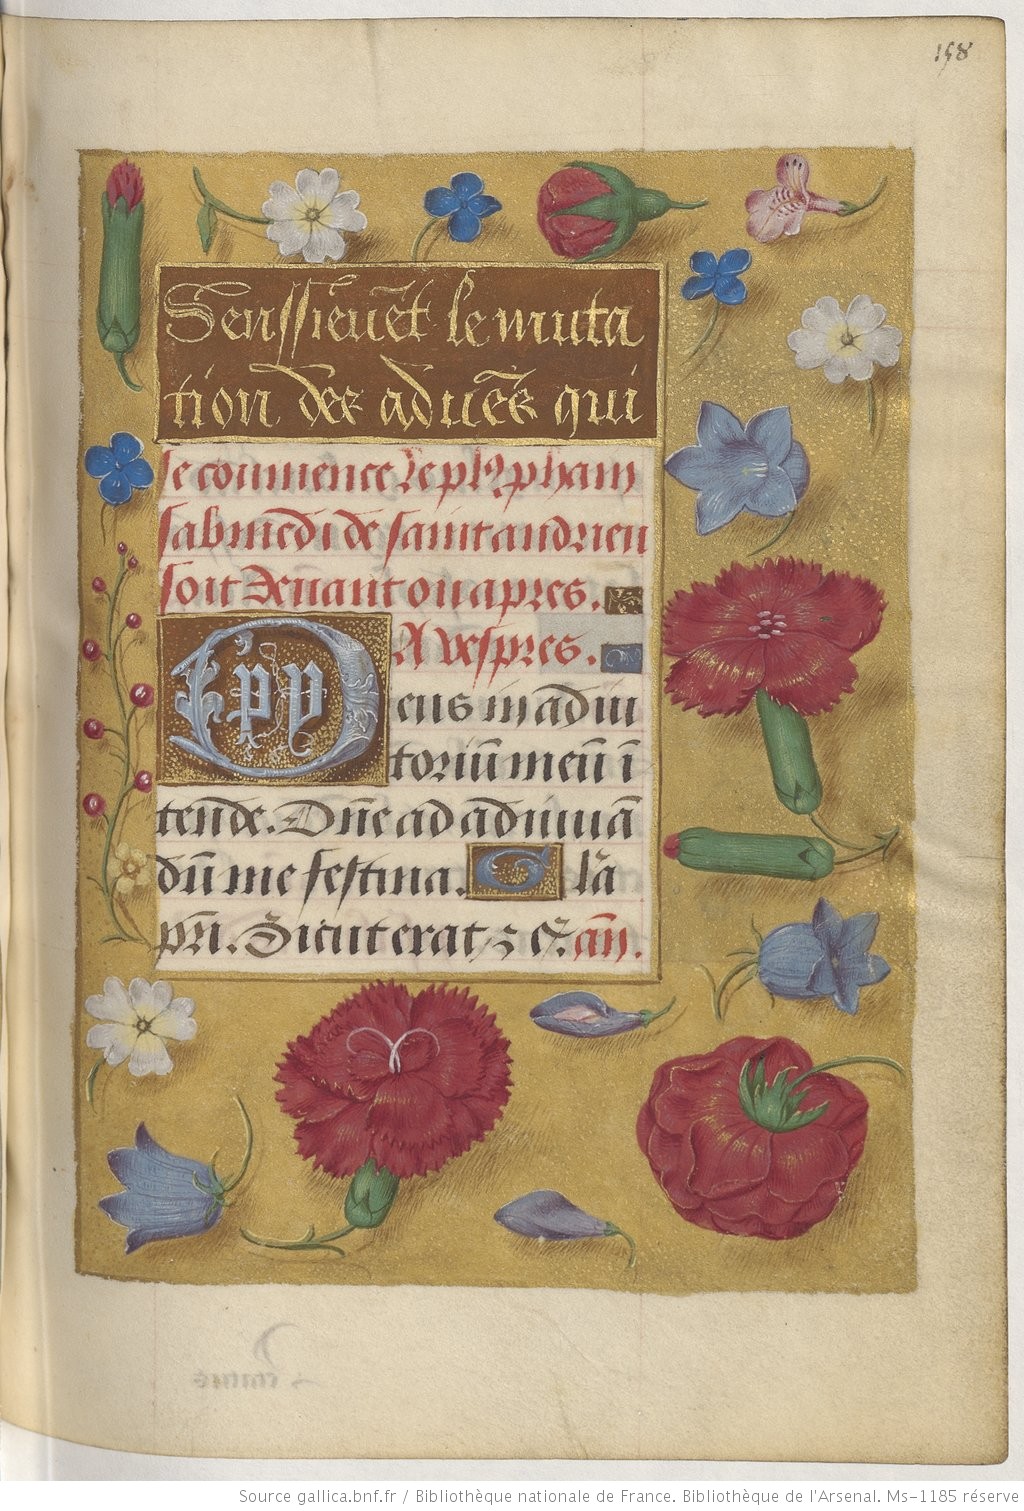 158
Senssievēt le muta
tion des aduēs qui
se commence le pl9 p̱cham
sabmedi de saint andrieu
soit deuant ou apres.
A vespres.
Deus in adiu
toriū meū ī
tende. Dn̄e ad adiuuā
dū me festina. G lā
pr̄i. Sicut erat. ⁊ c̄. an̄.
Source gallica.bnf.fr / Bibliothèque nationale de France. Bibliothèque de l'Arsenal. Ms-1185 réserve